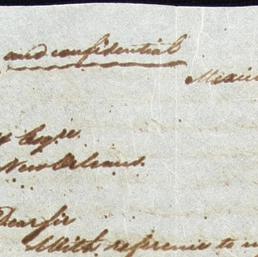 and confidential
Mexic
Esqre.
New Orleans.
Dear Sir
With reference to